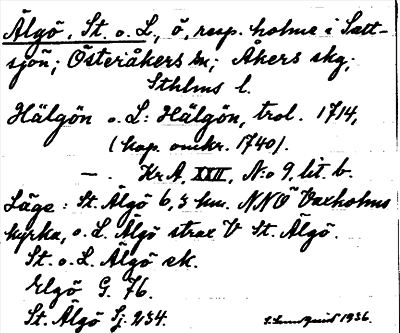 Älgö, St. o. L., ö, resp. holme i Saxt-
sjön; Österåkers sn; Åkers skg;
Sthlms l.
Hälgön o. L: Hälgön, trol. 1714,
(kop. omkr. 1740).
— . Kr A, XXII, N:o 9, lit. b.
Läge: St. Älgö 6,3 km. NNO Vaxholms
kyrka, o. L. Älgö strax V St. Älgö.
St. o. L. Älgö ek.
Elgö G. 76.
St. Älgö Sj. 234.
1936.